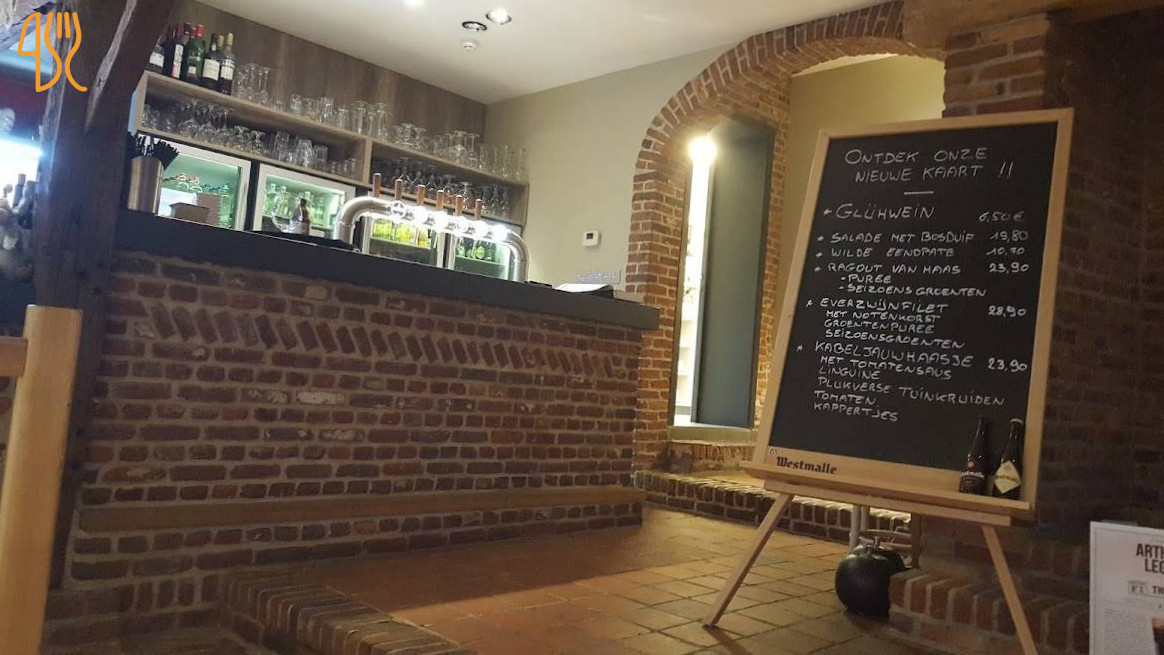 ONTDEK ONZE
NIEUWE KAART !!
* GLÜHWEIN 6,50€
* SALADE MET BOSDUIF 19,80
* WILDE EENDPATE 10,70
* RAGOUT VAN HAAS 23,90
- PUREE
- SEIZOENS GROENTEN
* EVERZWIJNFILET 28,90
MET NOTENKORST
GROENTENPUREE
SEIZOENSGROENTEN
* KABELJAUWHAASJE 23,90
MET TOMATENSAUS
LINGUINE
PLUKVERSE TUINKRUIDEN
TOMATEN
KAPPERTJES
Westmalle